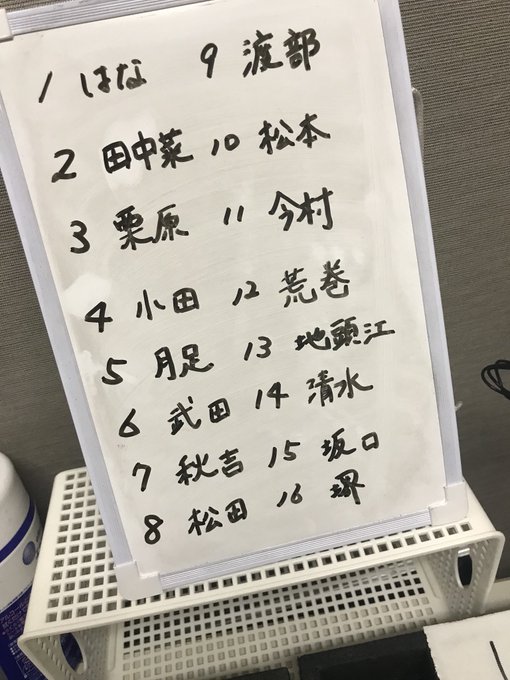 1 はな 9 渡部
2 田中菜 10 松本
3 栗原 11 今村
4 小田 12 荒巻
5 月足 13 地頭江
6 武田 14 清水
7 秋吉 15 坂口
8 松田 16 堺